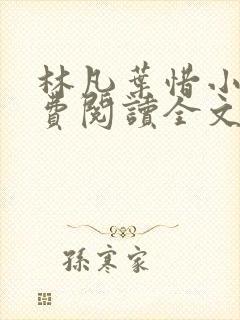 林凡葉惜小
費閱讀全文
孫寒家